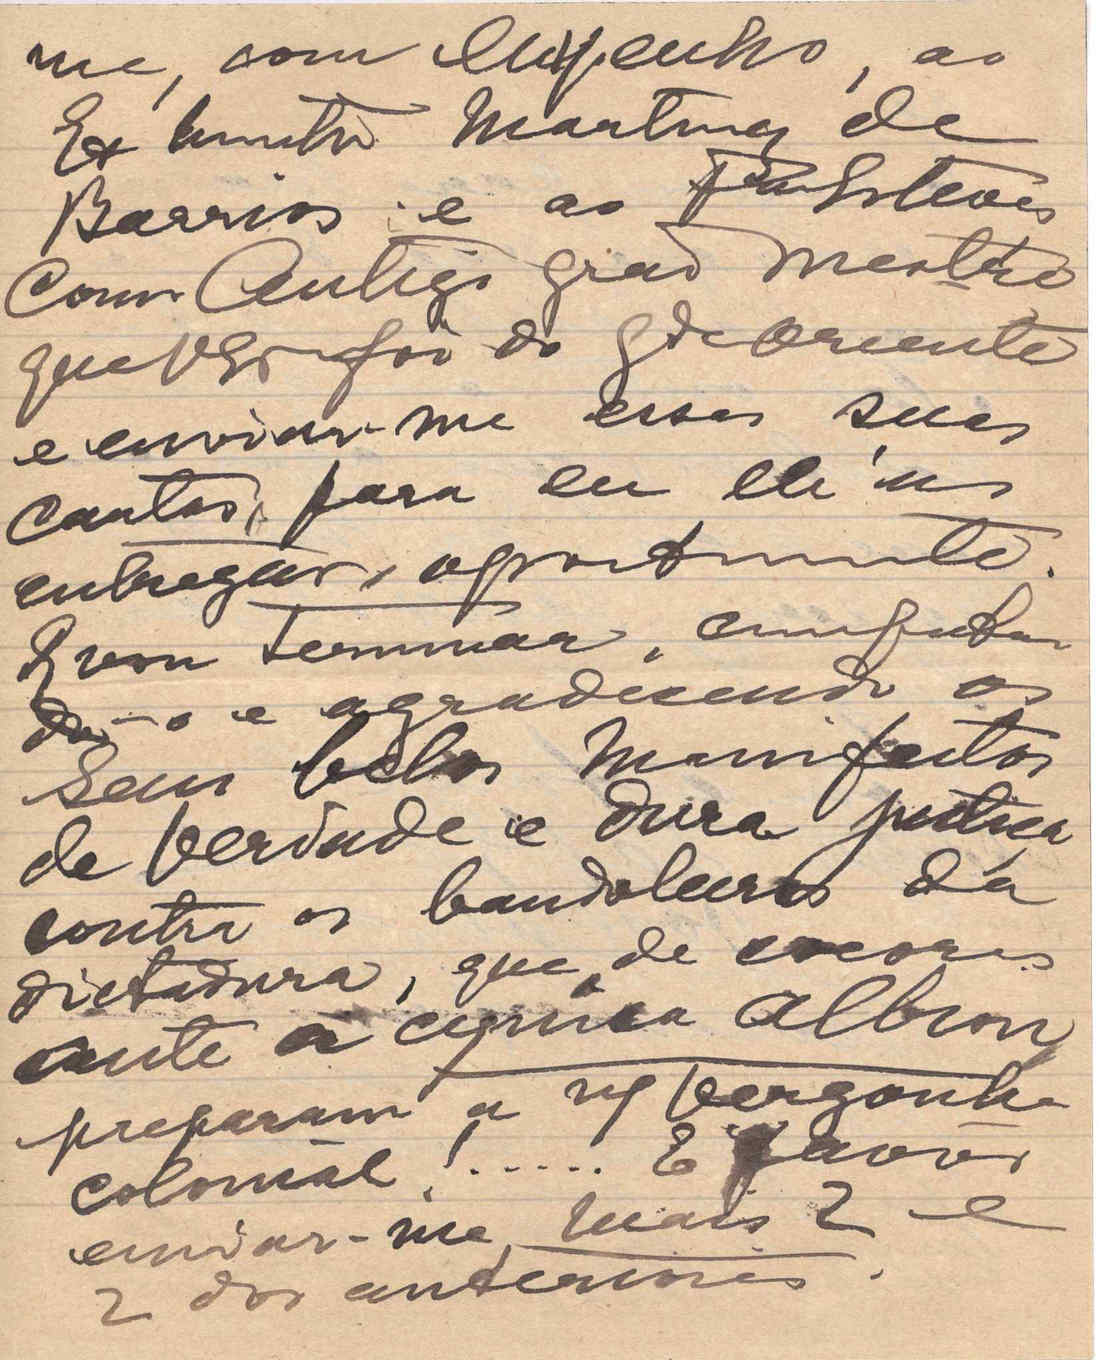 me, com empenho, ao
Ex Martinez de
Barrios e ao Esteves
como Antigo grão mestre
que foi do Gde Oriente
e enviar-me essas suas
cartas, para eu lh'as
entregar, oportunmte.
E vou terminar,
do-o e agradecendo os
Seus belos Manifestos
de Verdade e dura justiça
contra os bandoleiros da
dictadura, que, de cocoras
ante a cynica Albion,
preparam a vergonha
colonial!..... E favor
enviar-me, mais 2 e
2 dos anteriores.